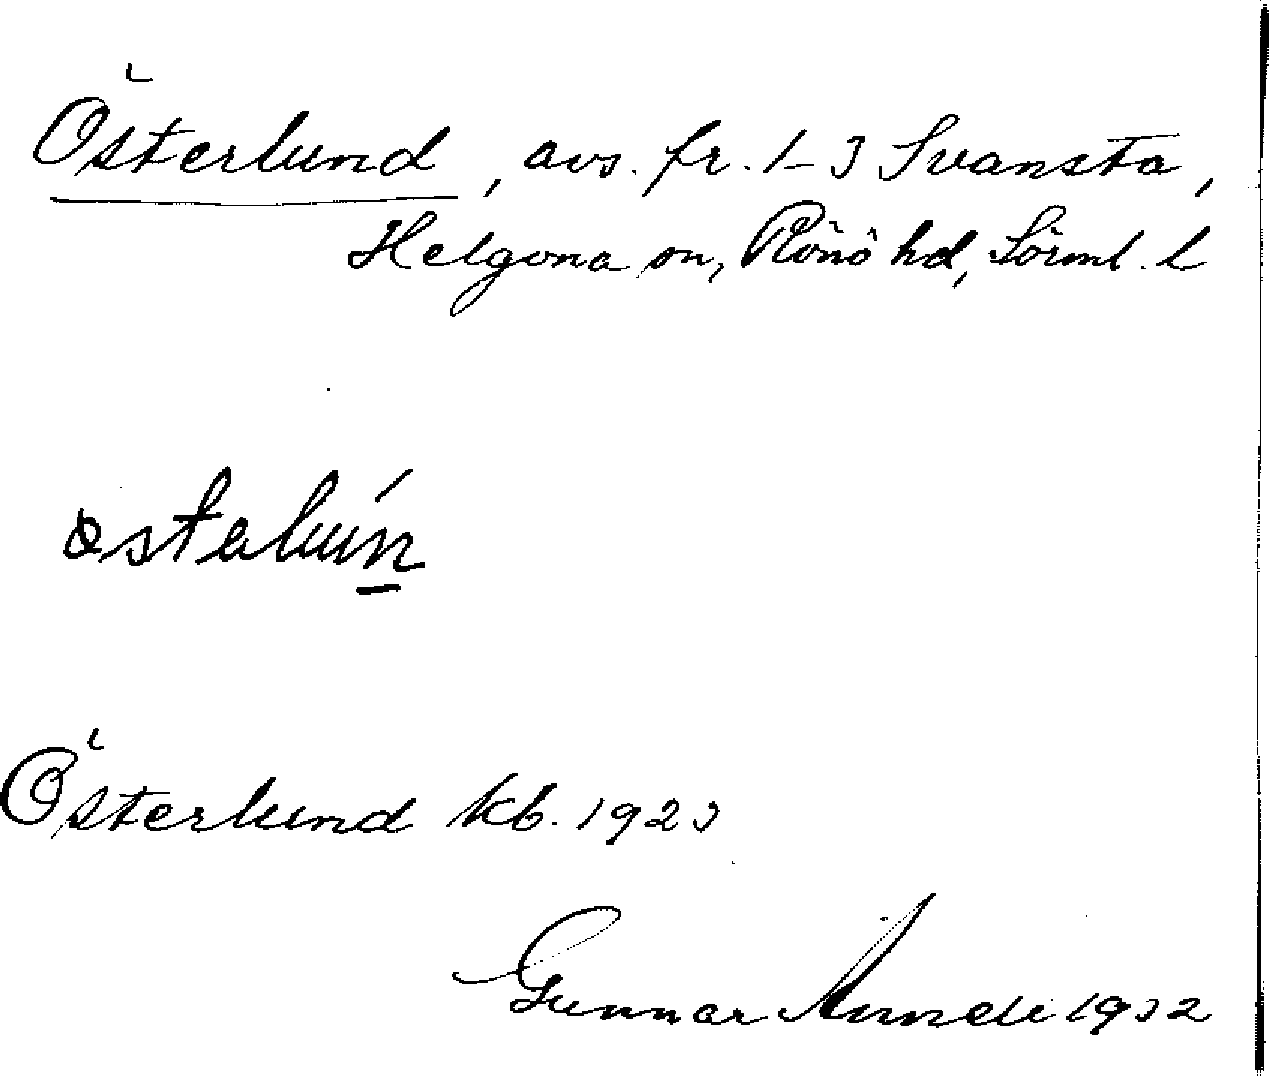 Österlund, avs. fr. 1-3 Svansta,
Helgona sn, Rönö hd, Sörml. l
Österlund kb. 1923
Gunnar 1932